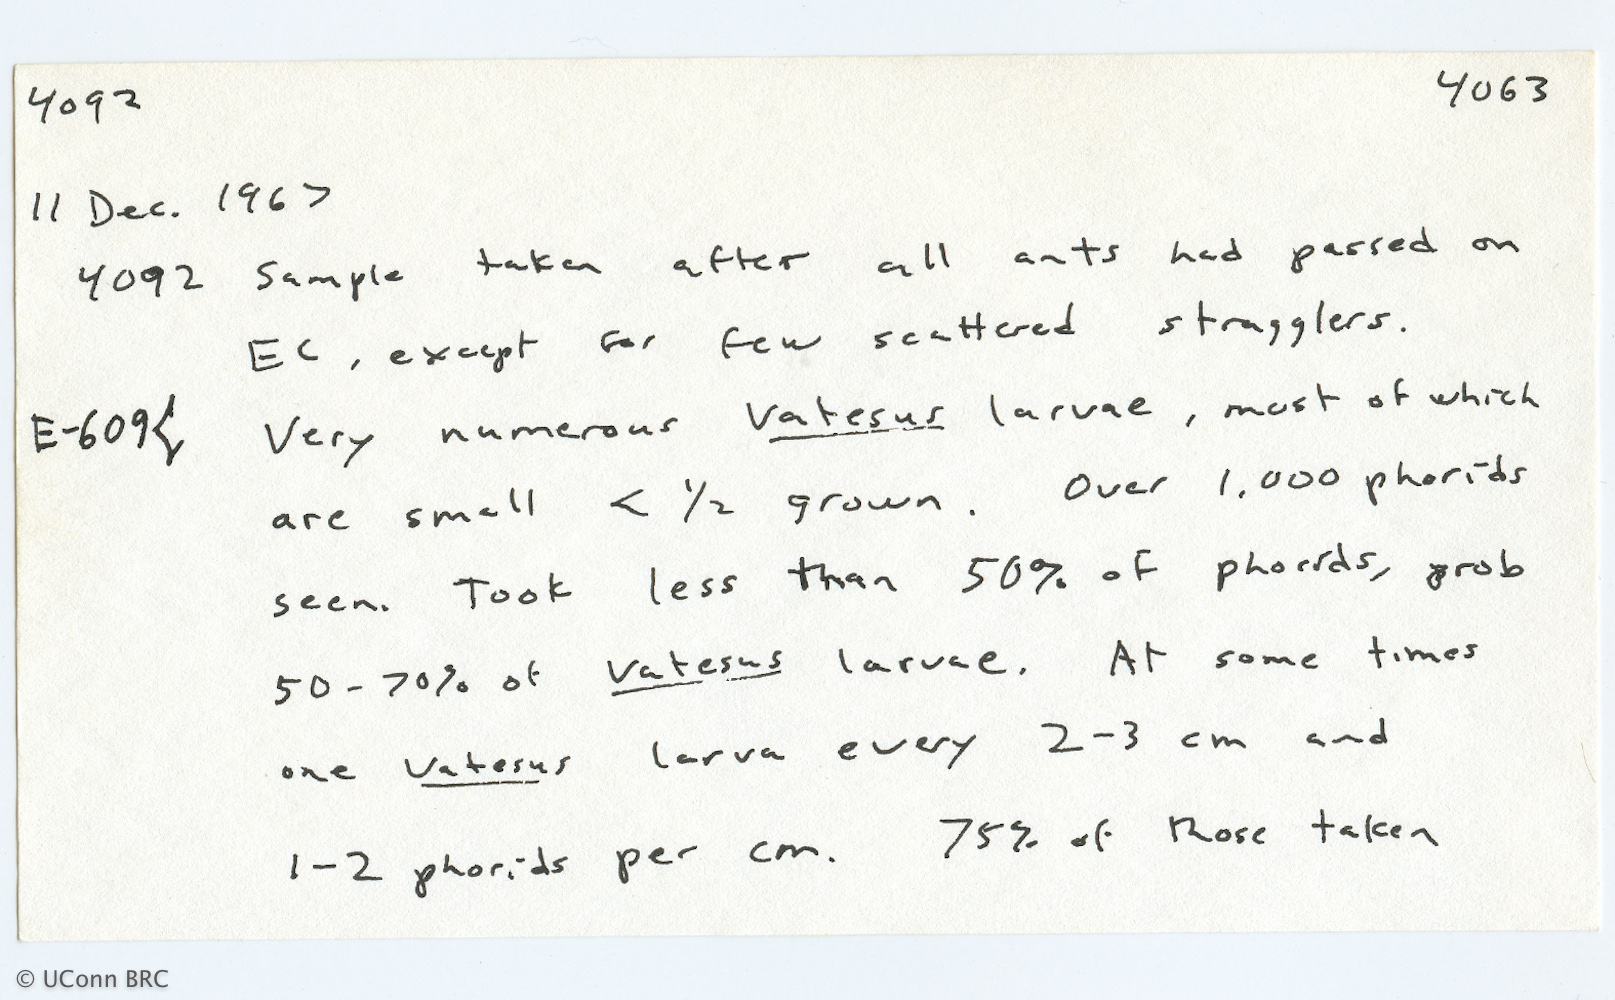 4092 4063
11 Dec. 1967
4092 Sample taken after all ants had passed on
EC, except for few scattered stragglers.
E-609{ Very numerous Vatesus larvae, most of which
are small < 1/2 grown. Over 1,000 phorids
seen. Took less than 50% of phorids, prob
50-70% of Vatesus larvae. At some times
one Vatesus larva every 2-3 cm and
1-2 phorids per cm. 75% of those taken
© UConn BRC